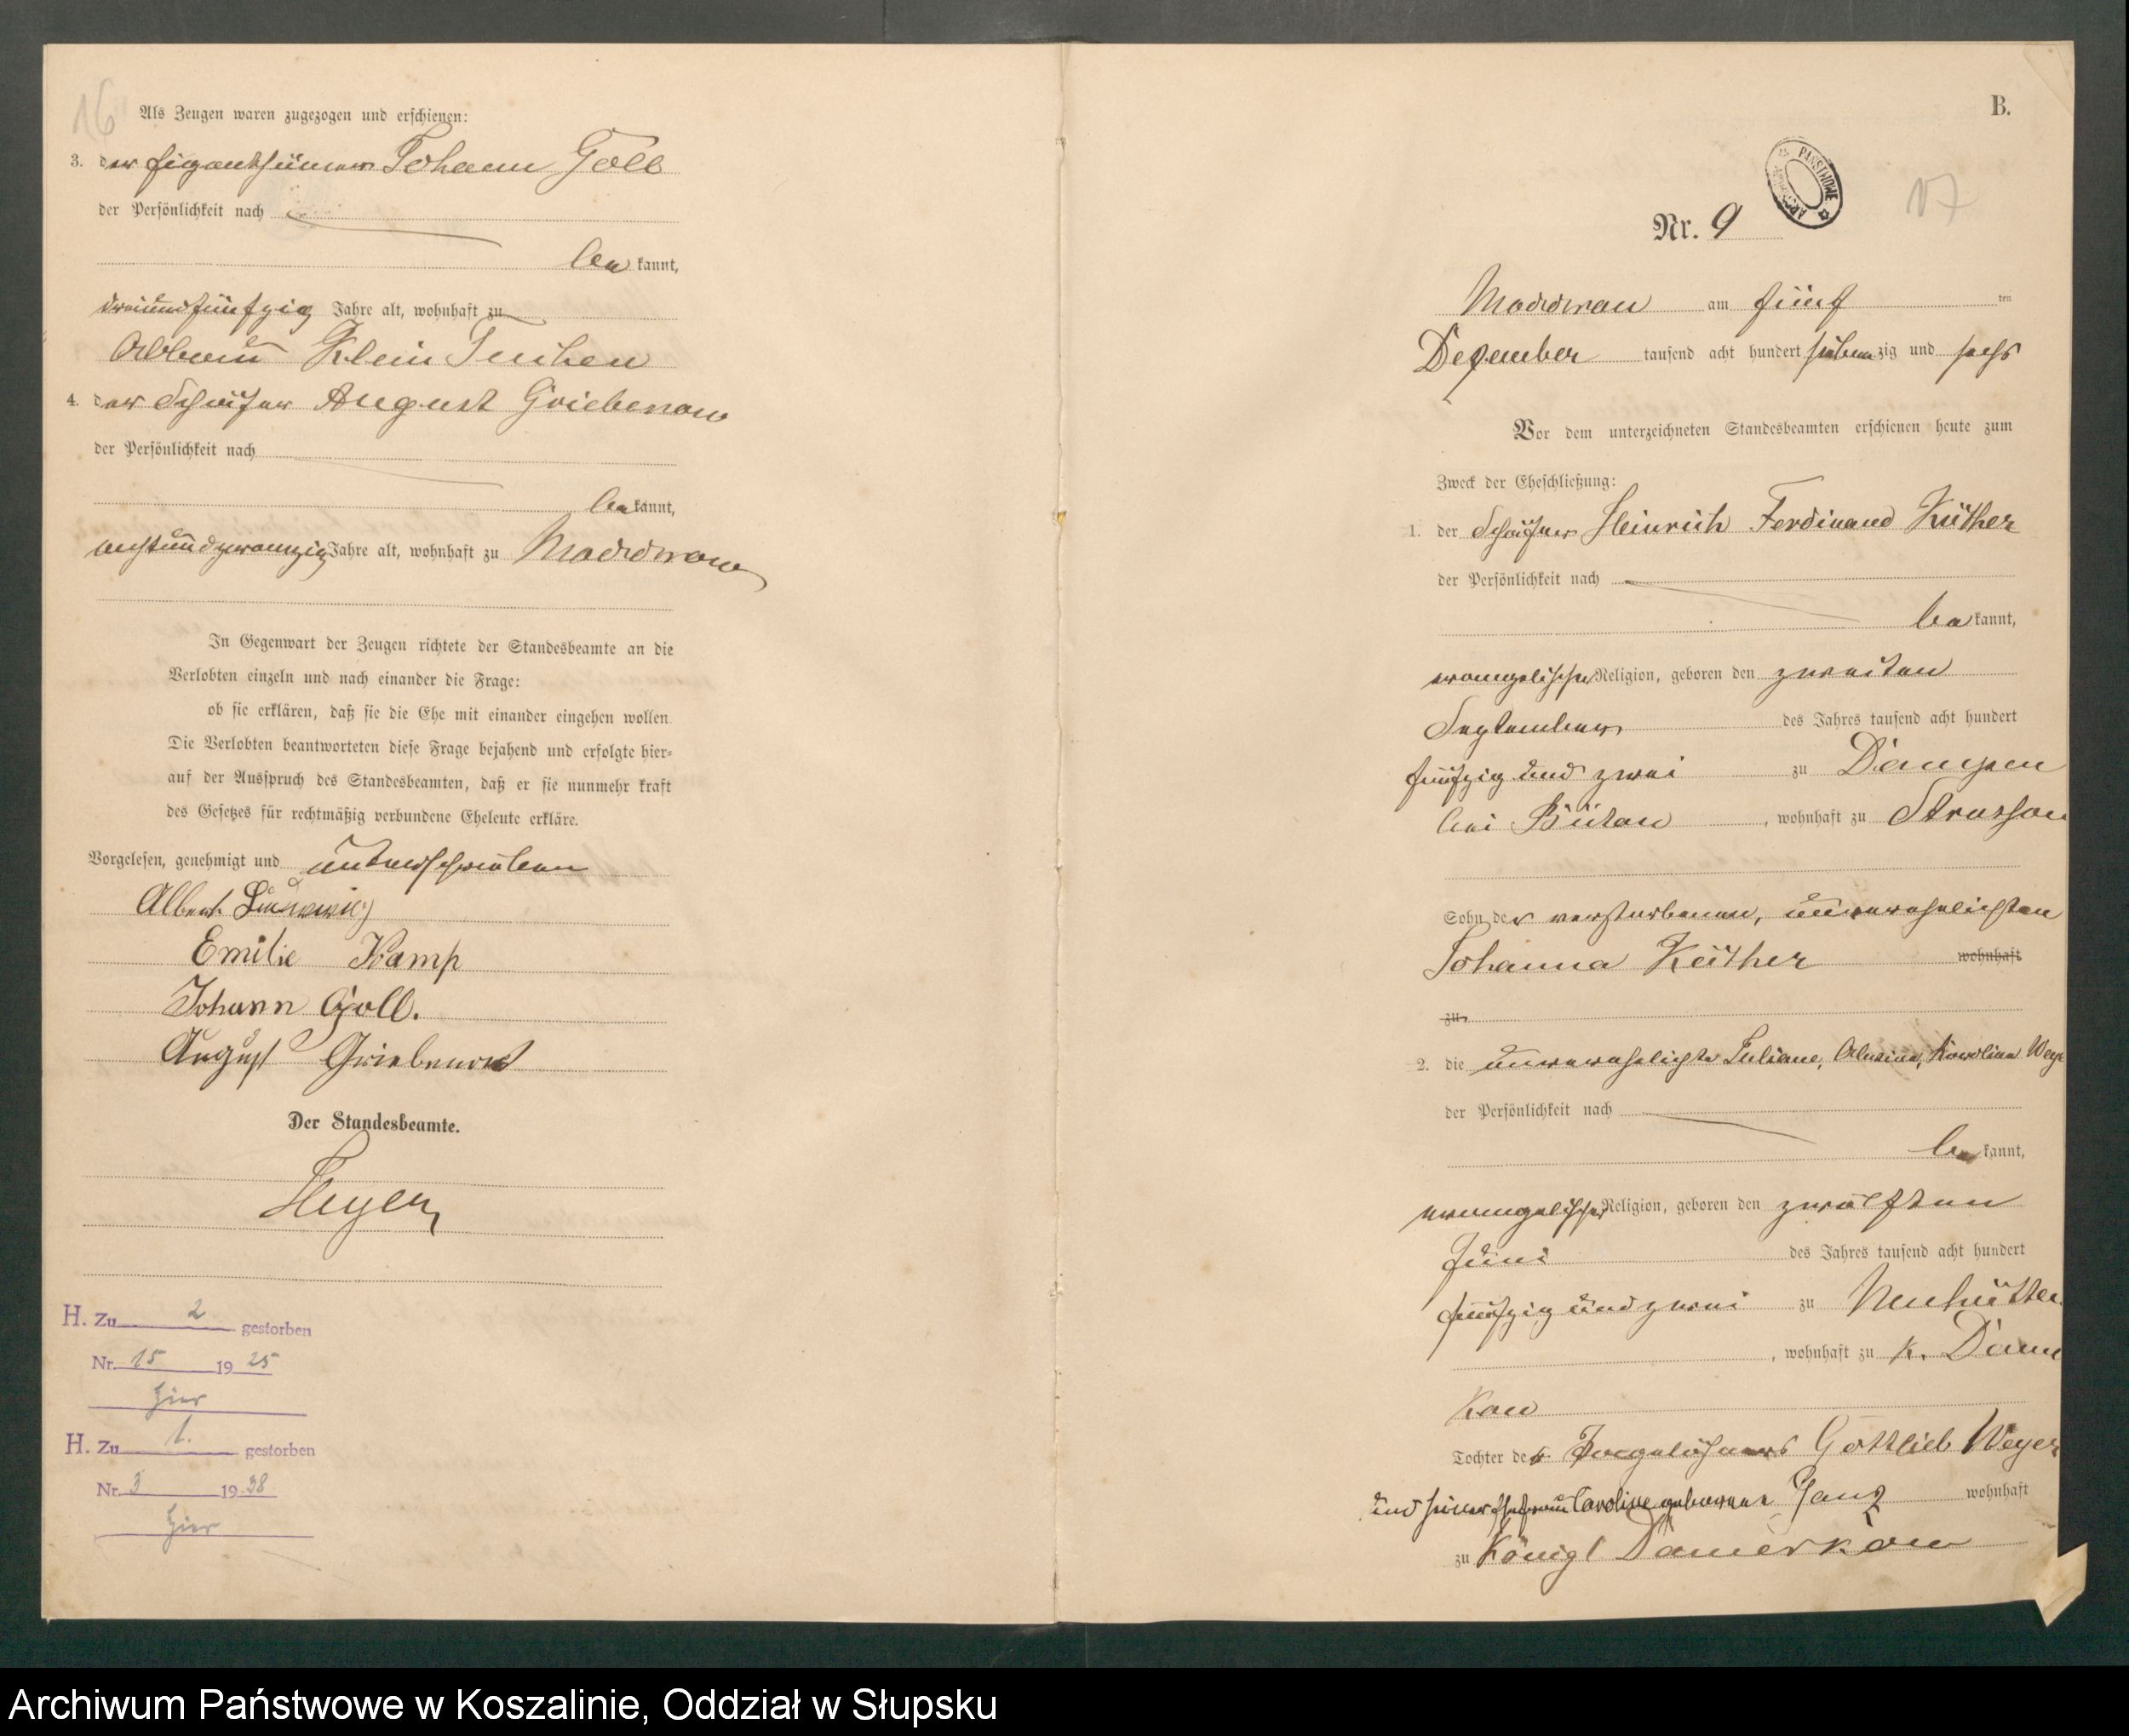 16
Als Zeugen waren zugezogen und erschienen:
3. der Eigenthümer Johann Goll
der Persönlichkeit nach
be kannt,
dreiundfünfzig Jahre alt, wohnhaft zu
Abbau Klein Tuchen
4. der Schäfer August Griebenow
der Persönlichkeit nach
be kannt,
achtundzwanzig Jahre alt, wohnhaft zu Moddrow
In Gegenwart der Zeugen richtete der Standesbeamte an die
Verlobten einzeln und nach einander die Frage:
ob sie erklären, daß sie die Ehe mit einander eingehen wollen.
Die Verlobten beantworteten diese Frage bejahend und erfolgte hier-
auf der Ausspruch des Standesbeamten, daß er sie nunmehr kraft
des Gesetzes für rechtmäßig verbundene Eheleute erkläre.
Vorgelesen, genehmigt und unterschrieben
Albert Ludwig
Emilie Kamp
Johann Goll.
August Griebenow
Der Standesbeamte.
Heyer
H. Zu 2 gestorben
Nr. 15 19 25
hier
H. Zu 1. gestorben
Nr. 3 19 38
hier
B.
17
Nr. 9
Moddrow am fünf ten
Dezember tausend acht hundert siebenzig und sechs
Vor dem unterzeichneten Standesbeamten erschienen heute zum
Zweck der Eheschließung:
1. der Schäfer Heinrich Ferdinand Küther
der Persönlichkeit nach
be kannt,
evangelischer Religion, geboren den zweiten
September des Jahres tausend acht hundert
fünfzig und zwei zu Dampen
bei Bütow, wohnhaft zu Strusson
Sohn der verstorbenen, unverehelichten
Johanna Küther wohnhaft
zu
2. die unverehelichte Juliane, Albertine, Karoline Weye
der Persönlichkeit nach
be kannt,
evangelischer Religion, geboren den zwölften
Juni des Jahres tausend acht hundert
fünfzig und zwei zu Neuhütten
, wohnhaft zu K. Dame
kow
Tochter des Tagelöhners Gottlieb Weyer
und seiner Ehefrau Caroline geborene Janz wohnhaft
zu Königl Damerkow
Archiwum Państwowe w Koszalinie, Oddział w Słupsku